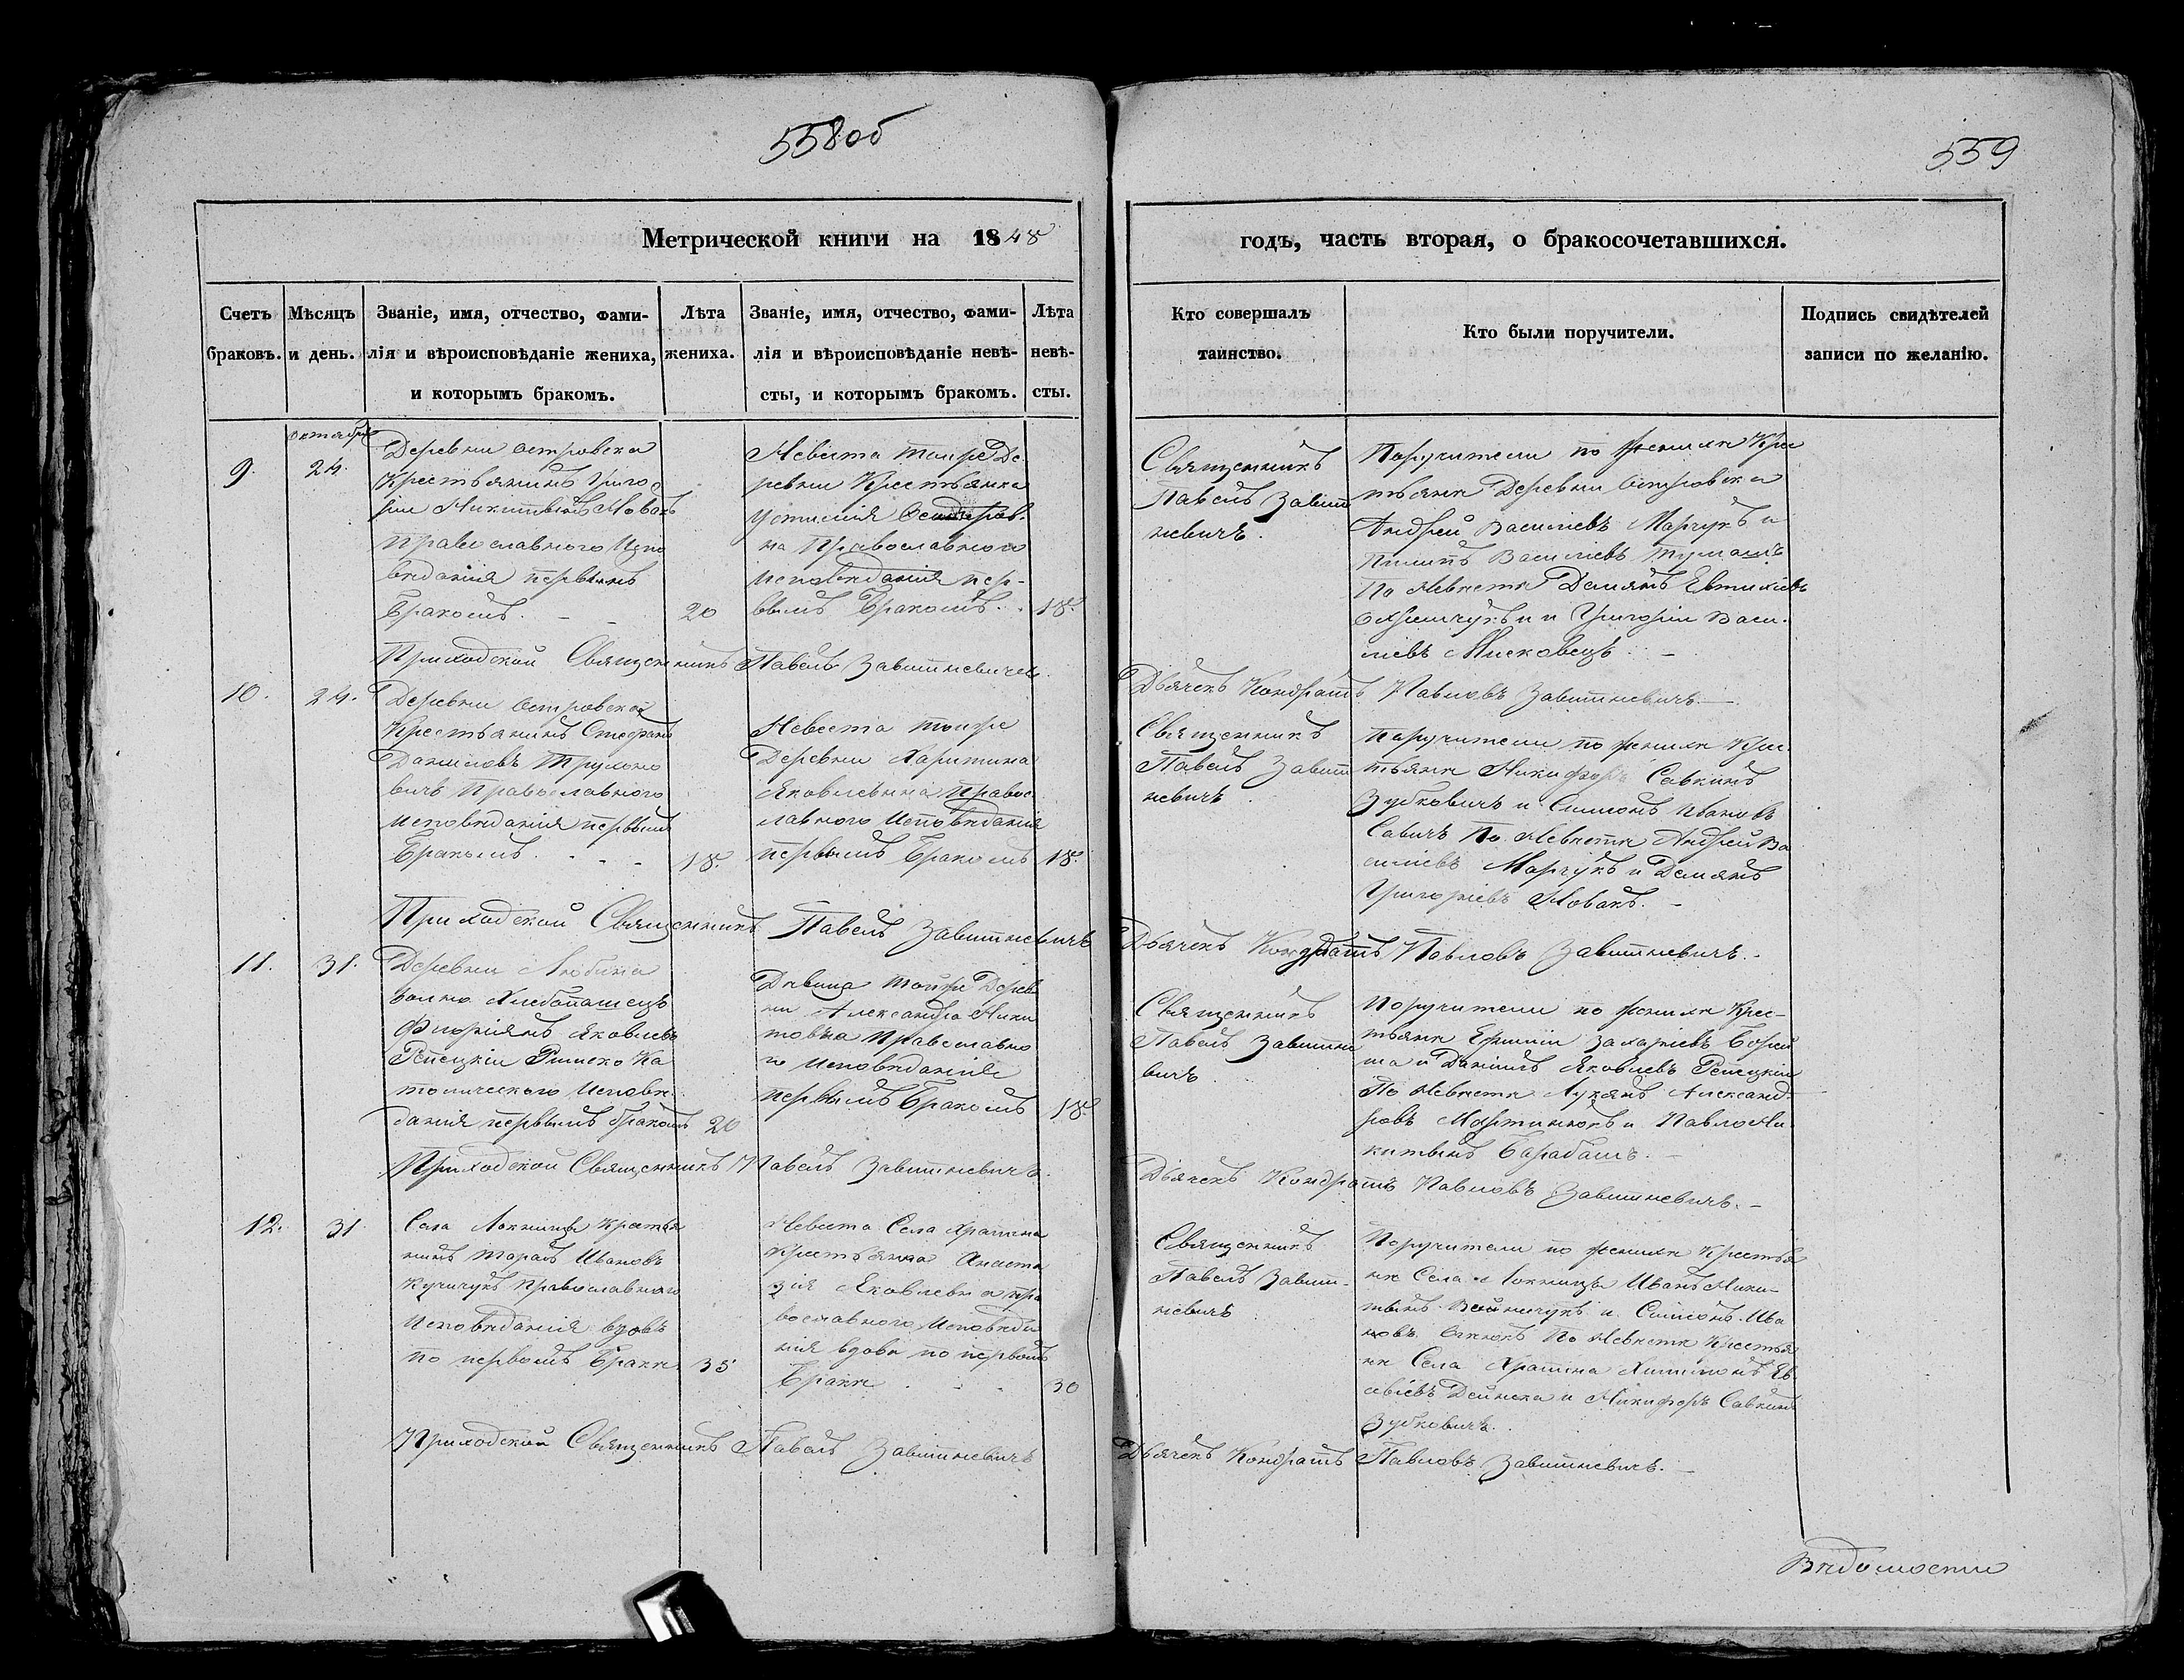 558об
559
Метрической книги на 1848
годъ, часть вторая, о бракосочетавшихся.
Счетъ браковъ.
Мѣсяцъ и день.
Званіе, имя, отчество, фами-
лія и вѣроисповѣданіе жениха,
и которымъ бракомъ.
Лѣта
жениха.
Званіе, имя, отчество, фами-
лія и вѣроисповѣданіе невѣ-
сты, и которымъ бракомъ.
Лѣта
невѣ-
сты.
Кто совершалъ
таинство.
Кто были поручители.
Подпись свидѣтелей
записи по желанію.
9.
октября
24.
Деревни островска
Крестьянинъ Григо
рій Никитинъ Новакъ
православного Испо
вѣданія первымъ
Бракомъ.
20
Невеста тойже Де
ревни Крестьянка
Устинія
на Православного
Исповѣданія пер-
вымъ Бракомъ.
18.
Священникъ
Павелъ Завит
невичъ.
Поручители по жениху Крес
тьяне Деревни Островска
Андрей Василіевъ Марчукъ и
Василіевъ
По Невѣсте Демянъ Евтихіевъ
и Григорій Васи-
ліевъ Мисковецъ. –
Приходской Священникъ Павелъ Завитневичъ.
Дьячекъ Кондратъ Павловъ Завитневичъ. –
10.
24.
Деревни Островска
Крестьянинъ Стефанъ
Даниловъ Трухоно
вичъ Православного
исповѣданія первымъ
Бракомъ.
18.
Невеста тойже
Деревни Харитина
Яковлевна Правос
лавного Исповѣданія
первымъ Бракомъ
18.
Священникъ
Павелъ Завит
невичъ.
Поручители по жениху Крес
тьяне Никифоръ Савкинъ
Зубковичъ и Симеонъ Ивановъ
Савичъ По Невѣсте Андрей Ва
силіевъ Марчукъ и Демянъ
Григоріевъ Новакъ. –
Приходской Священникъ Павелъ Завитневичъ
Дьячекъ Кондратъ Павловъ Завитневичъ. –
11.
31.
Деревни Любина
Хлебопашецъ
Флоріянъ Яковлевъ
Репецкій Римско Ка
толического Исповѣ
данія первымъ бракомъ
20
Дѣвица тойже Дерев
ни Александра Ники
товна Православно
го Исповѣданія
первымъ Бракомъ
18.
Священникъ
Павелъ Завитне
вичъ.
Поручители по жениху Крес-
тьяне Захаріевъ
и Даніилъ Яковлевъ Репецкій
По Невѣсте Лукянъ Александ-
ровъ Мартинюкъ и Павло Ни-
китинъ Барабашъ. –
Приходской Священникъ Павелъ Завитневичъ.
Дьячекъ Кондратъ Павловъ Завитневичъ. –
12.
31.
Села Локницы Крестья
нинъ Тарасъ Ивановъ
Кушчукъ Православного
Исповѣданія вдовъ
по первомъ Бракѣ
35
Невеста Села Храпина
Крестьянка Анаста
зія Яковлевна Пра
вославного Исповѣда
нія вдова по первомъ
Бракѣ
30
Священникъ
Павелъ Завит-
невичъ
Поручители по жениху Крестья
не Села Локницы Иванъ Ники-
тинъ и Симеонъ Ива
новъ По Невѣсте Крестья
не Села Храпина Ев
севіевъ Дейнека и Никифоръ Савкинъ
Зубковичъ.
Приходской Священникъ Павелъ Завитневичъ
Дьячекъ Кондратъ Павловъ Завитневичъ. –
Вѣдомости